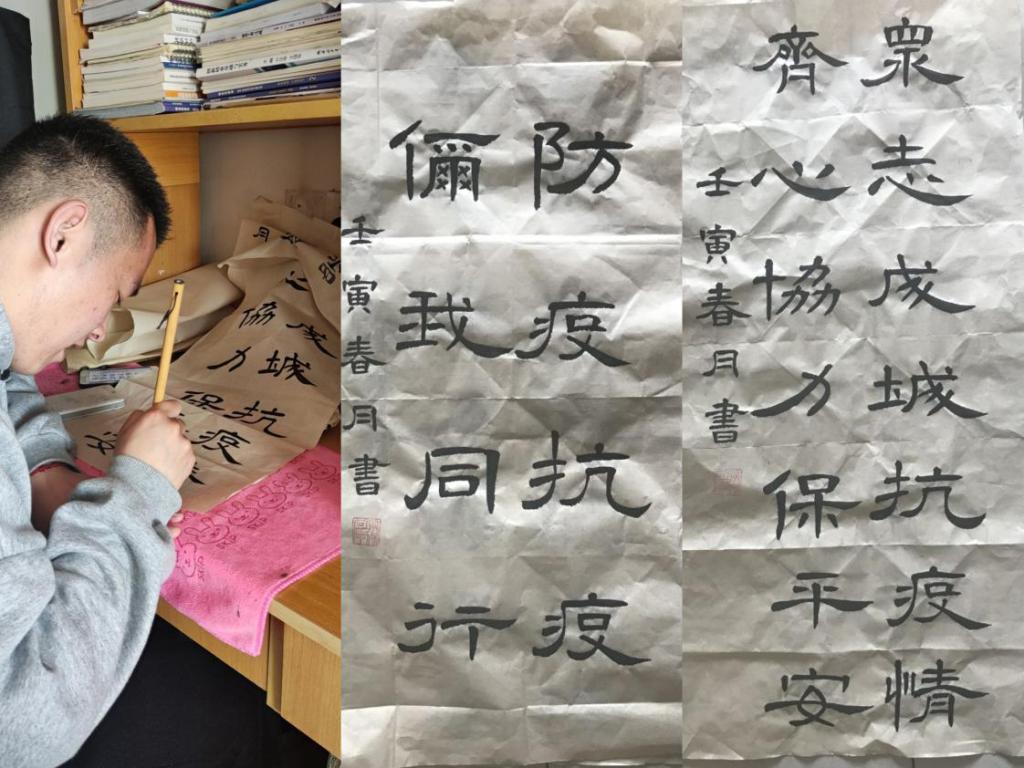 成城抗疫
心協力保
安
月
防疫抗疫
儞我同行
壬寅春月書
眾志成城抗疫情
齊心協力保平安
壬寅春月書